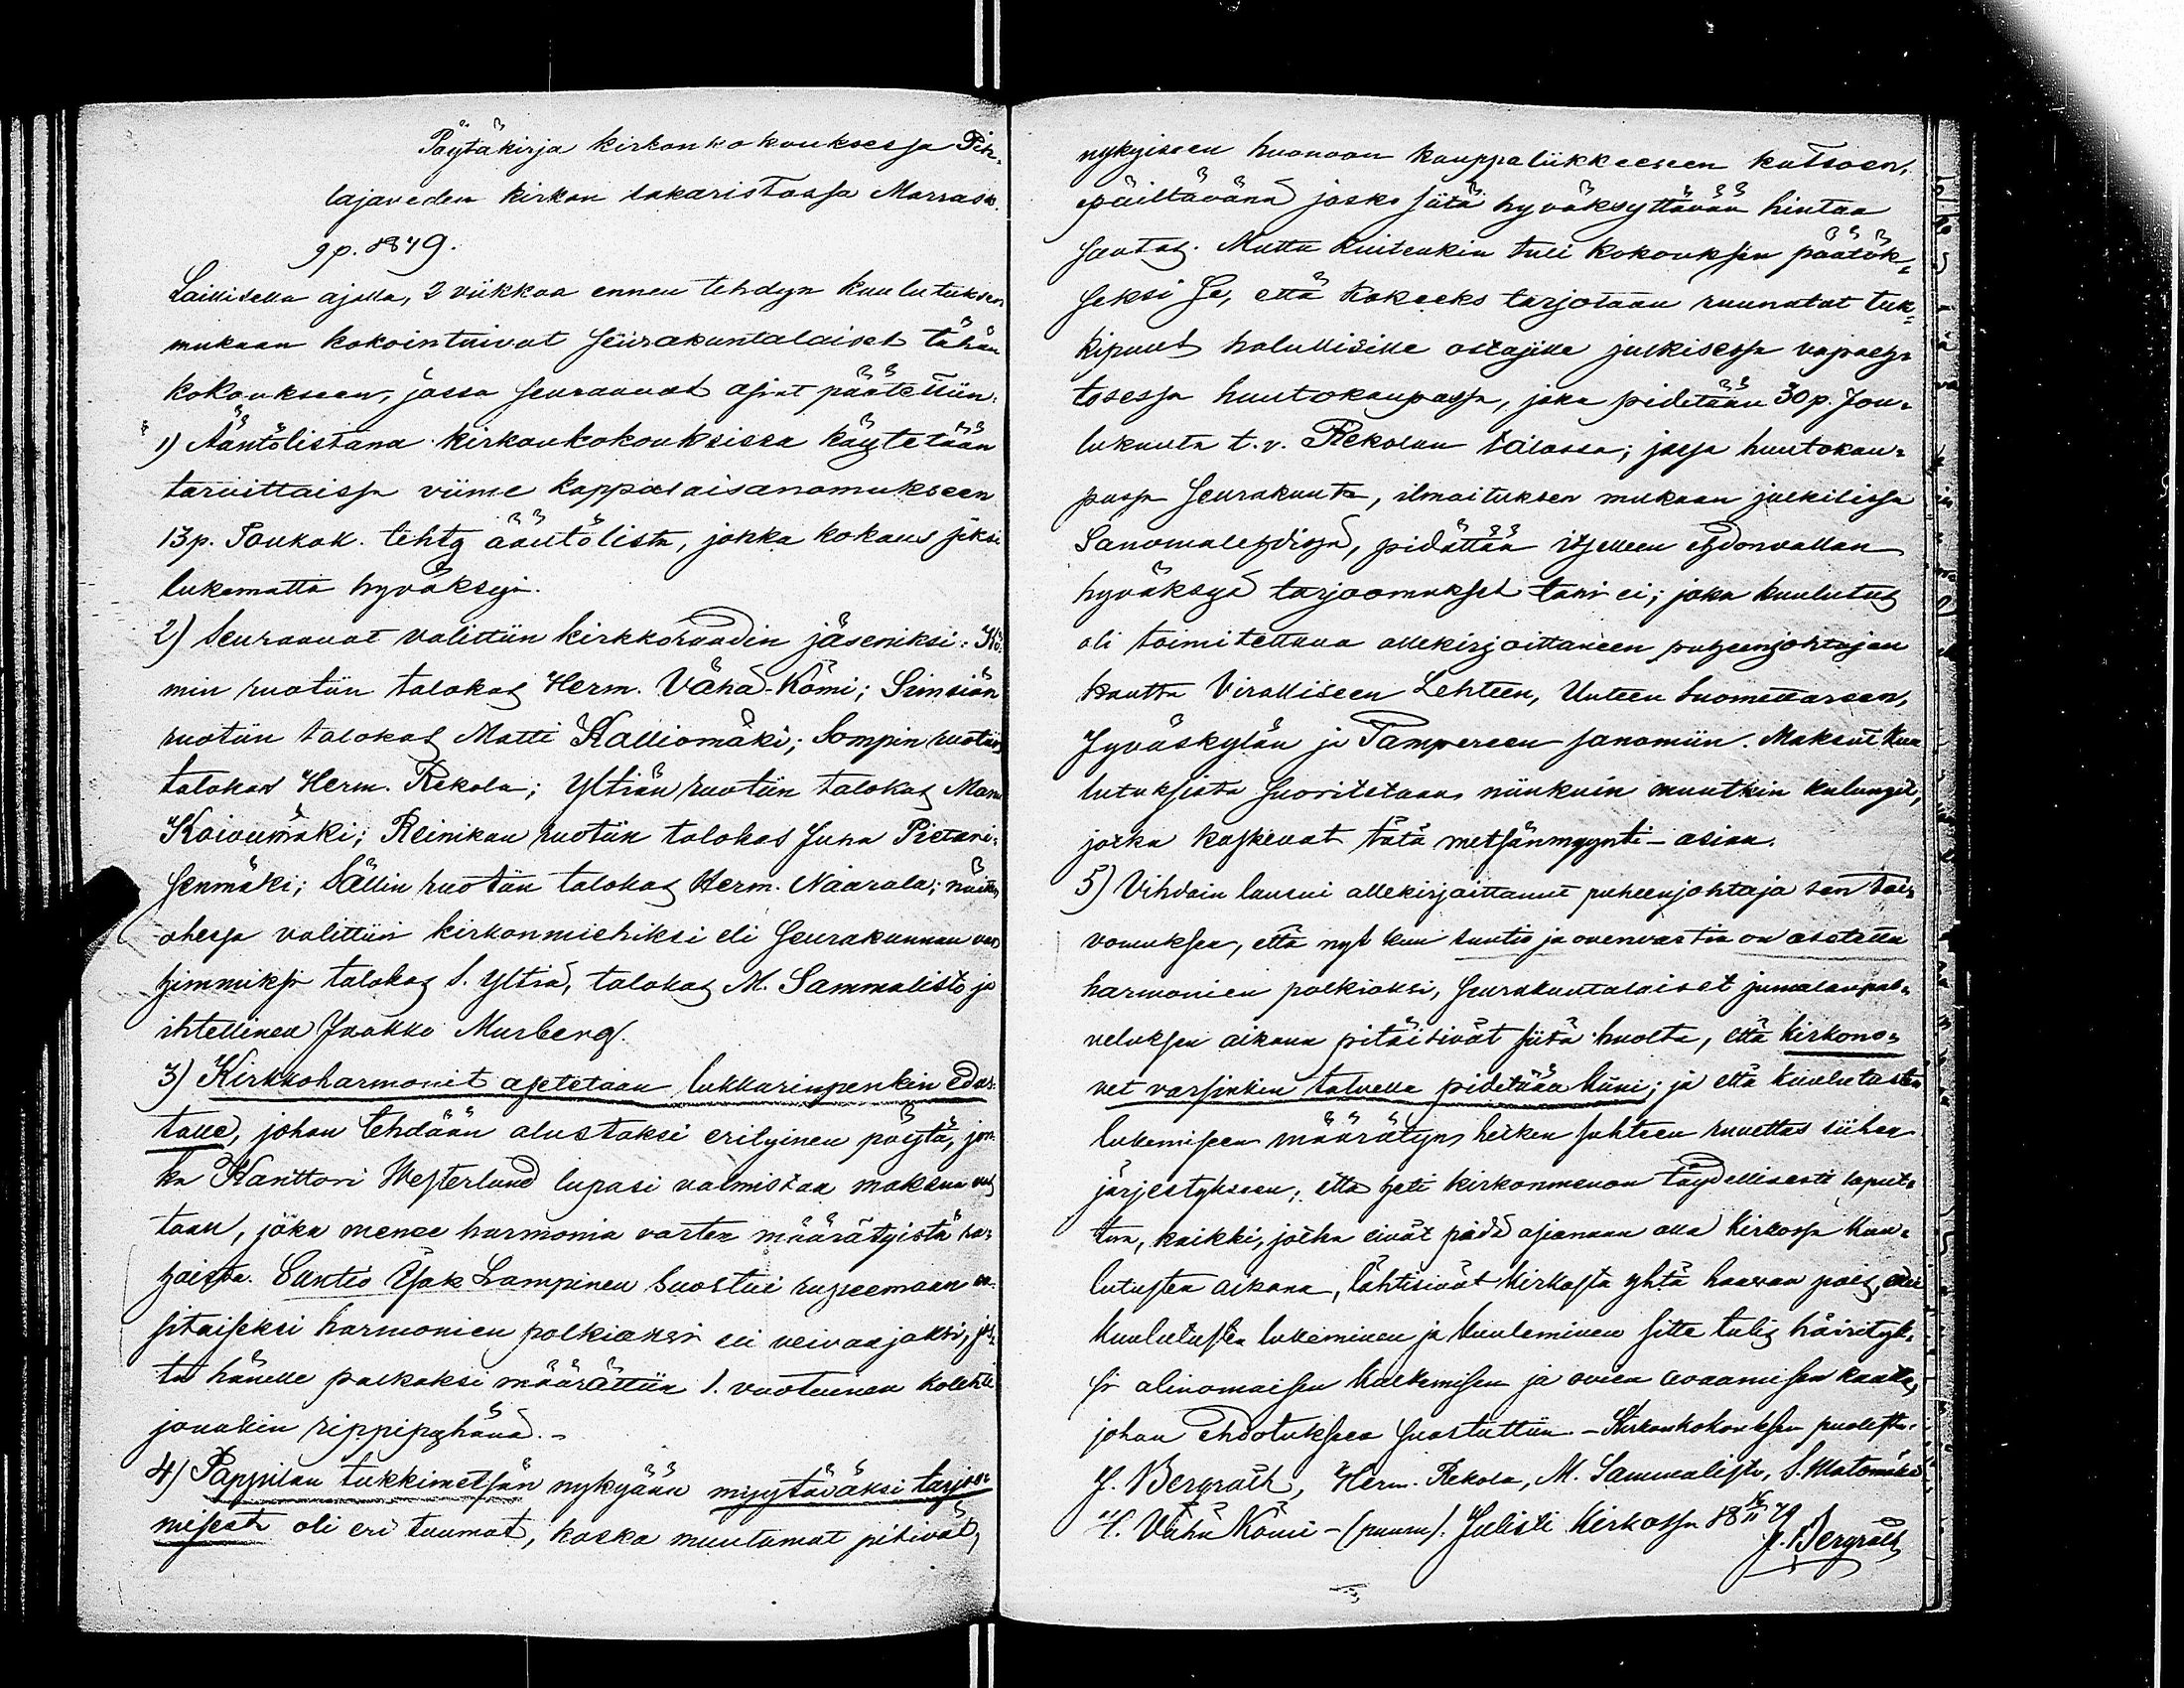 Pöytäkirja kirkonkokouksessa Pih¬
lajaveden kirkon sakaristossa Marrask.
9 p. 1879.
Laillisella ajalla, 2 viikkoa ennen tehdyn kuulutuksen
mukaan kokointuivat seurakuntalaiset tähän
kokoukseen, jossa seuraavat asiat päätettiin.
1) Ääntölistana kirkonkokouksissa käytetään
tarvittaissa viime kappalaisanomukseen
13 p. Toukok. tehty ääntölista, jonka kokous siksi
lukematta hyväksyi.
2) Seuraavat valittiin kirkkoraadin jäseniksi: Kö¬
min ruotiin talokas Herm. Vähä-Kömi; Simsiön
ruotiin talokas Matti Kalliomäki; Sompin ruotiin
talokas Herm. Rekola; Yltiän ruotiin talokas Manu
Koivumäki; Reinikan ruotiin talokas Juha Pietari¬
senmäki; Sällin ruotiin talokas Herm. Naarala; näitten
ohessa valittiin kirkonmiehiksi eli seurakunnan van
himmiksi talokas S. Yltiä, talokas M. Sammalisto ja
ihtellinen Jaakko Murberg.
3) Kirkkoharmonit asetetaan lukkarinpenkin edus¬
talle, johon tehdään alustaksi erityinen pöytä, jon¬
ka Kanttori Westerlund lupasi valmistaa maksua vas
taan, joka menee harmonia varten määrätyistä ra¬
hoista. Suntio Isak Lampinen suostui rupeemaan va¬
sitaiseksi harmonien polkiaksi eli veivaajaksi, jos¬
ta hänelle palkaksi määrättiin 1. vuotuinen kolehti
jonakin rippipyhänä. –
4) Pappilan tukkimetsän nykyään myytäväksi tarjoo¬
misesta oli eri tuumat, koska muutamat pitivät,
nykyiseen huonoon kauppaliikkeeseen katsoen,
epäiltävänä josko siitä hyväksyttävää hintaa
saatas. Mutta kuitenkin tuli kokouksen päätök¬
seksi se, että kokeeks tarjotaan ruunatut tuk¬
kipuut halullisille ostajille julkisessa vapaeh¬
tosessa huutokaupassa, joka pidetään 30 p. Jou¬
lukuuta t. v. Rekolan talossa; jossa huutokau¬
passa seurakunta, ilmoituksen mukaan julkisissa
Sanomalehdissä, pidättää itselleen ehdonvallan
hyväksyä tarjoomukset tahi ei; joka kuulutus
oli toimitettava allekirjoittaneen puheenjohtajan
kautta Viralliseen Lehteen, Uuteen Suomettareen,
Jyväskylän ja Tampereen sanomiin. Maksut kuu
lutuksista suoritetaan, niinkuin muutkin kulungit,
jotka koskevat tätä metsänmyynti-asiaa.
5) Vihdoin lausui allekirjoittanut puheenjohtaja sen toi¬
vomuksen, että nyt kun suntio ja ovenvartia on asetettu
harmonien polkiaksi, seurakuntalaiset jumalanpal¬
veluksen aikana pitäisivät siitä huolta, että kirkono¬
vet varsinkin talvella pidetään kiini; ja että kuulutusten
lukemiseen määrätyn hetken suhteen ruvettas siihen
järjestykseen, että heti kirkonmenon täydellisesti loput¬
tua, kaikki, jotka eivät pidä asianaan olla kirkossa kuu¬
lutusten aikana, lähtisivät kirkosta yhtä haavaa pois, ettei
kuulutusten lukeminen ja kuuleminen sitte tulis häirityk¬
si alinomaisen kulkemisen ja ovien avaamisen kautta,
johon ehdotukseen suostuttiin. – Kirkonkokouksen puolesta:
J. Bergroth, Herm. Rekola, M. Sammalisto, S. Matomäki
H. Vähä Kömi – (puum.). Julisti Kirkossa 18 16/11 79
J. Bergroth